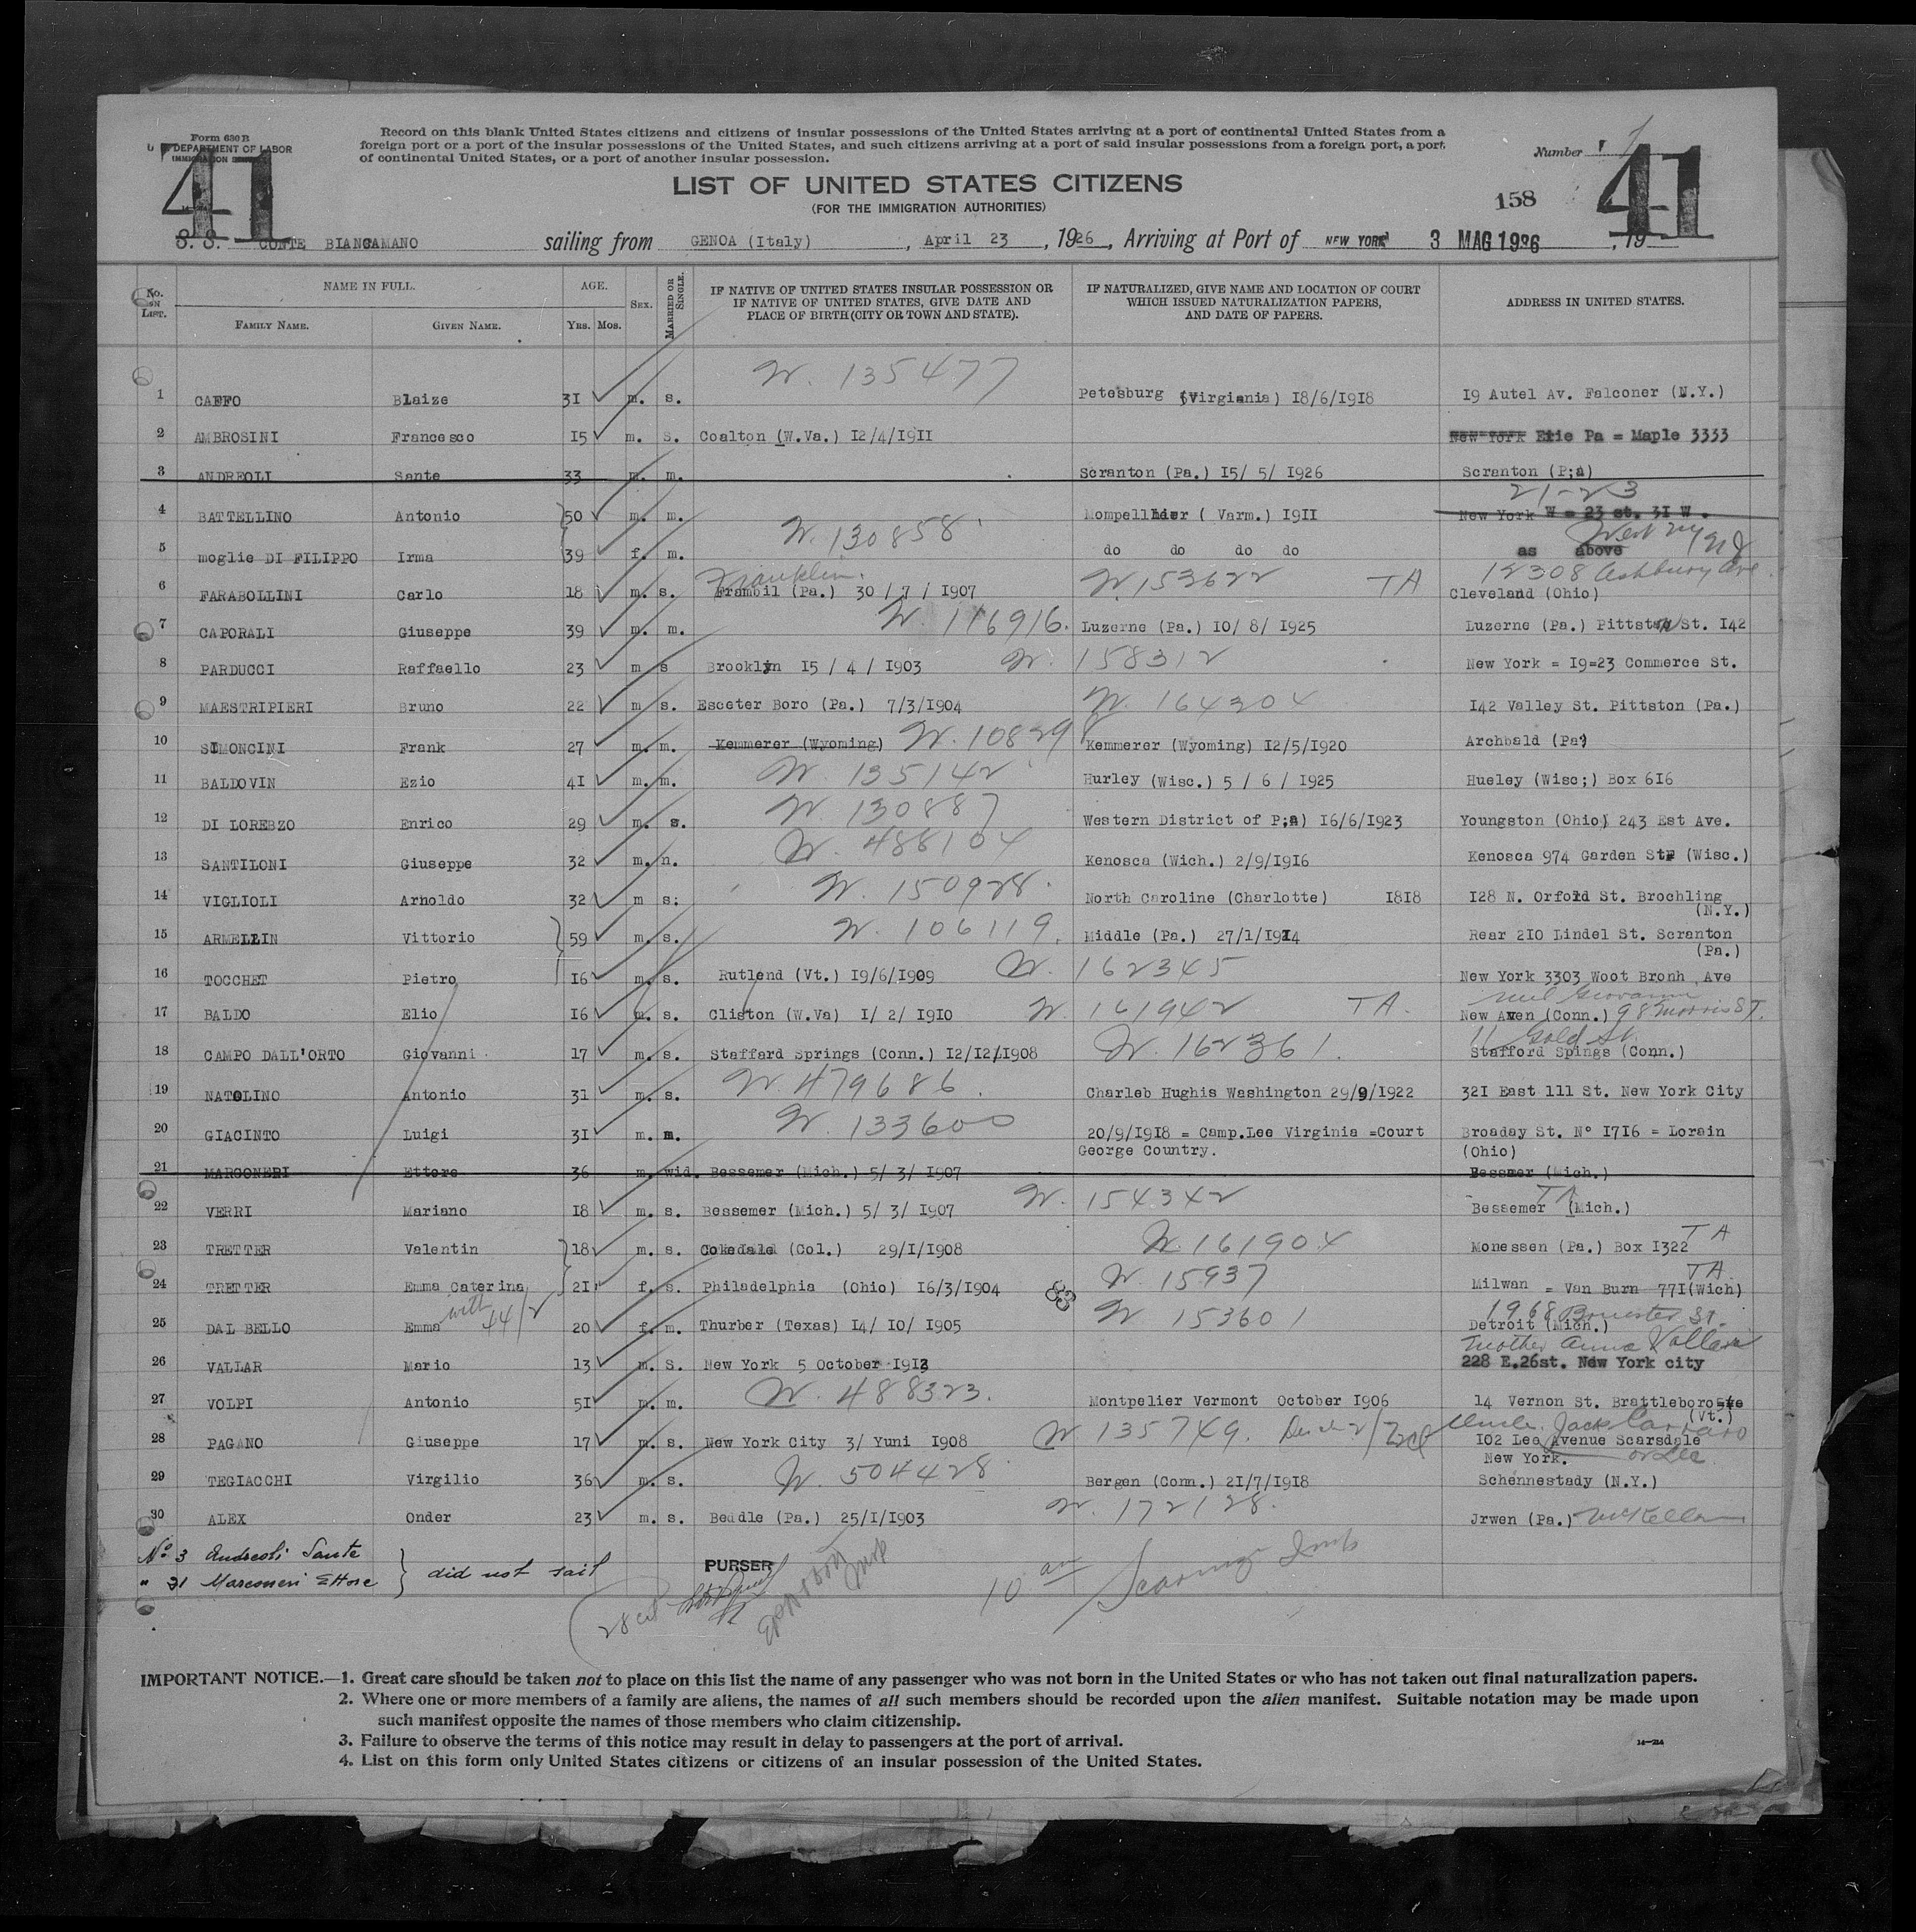 Form 630 B
U. S. DEPARTMENT OF LABOR
IMMIGRATION
41
Record on this blank United States citizens and citizens of insular possessions of the United States arriving at a port of continental United States from a
foreign port or a port of the insular possessions of the United States, and such citizens arriving at a port of said insular possessions from a foreign port, a port
of continental United States, or a port of another insular possession.
Number
41
LIST OF UNITED STATES CITIZENS
(FOR THE IMMIGRATION AUTHORITIES)
158
S. S. CONTE BIANCAMANO sailing from GENOA (Italy), April 23, 1926, Arriving at Port of NEW YORK 3 MAG 1926, 19
No. ON LIST. NAME IN FULL. AGE. SEX. MARRIED OR SINGLE. IF NATIVE OF UNITED STATES INSULAR POSSESSION OR IF NATIVE OF UNITED STATES, GIVE DATE AND PLACE OF BIRTH (CITY OR TOWN AND STATE). IF NATURALIZED, GIVE NAME AND LOCATION OF COURT WHICH ISSUED NATURALIZATION PAPERS, AND DATE OF PAPERS. ADDRESS IN UNITED STATES.
FAMILY NAME. GIVEN NAME. YRS. MOS.
1 CAFFO Blaize 31 m. s. W. 135477 Petesburg (Virginia) 18/6/1918 19 Autel Av. Falconer (N.Y.)
2 AMBROSINI Francesco 15 m. S. Coalton (W.Va.) 12/4/1911 New York Erie Pa = Maple 3333
3 ANDREOLI Sante 33 m. m. Scranton (Pa.) 15/ 5/ 1926 Scranton (P;a)
21-23
4 BATTELLINO Antonio 50 m. m. Mompellier ( Varm.) 1911 New York W = 23 st. 31 W.
W. 130858 West NY NJ
5 moglie DI FILIPPO Irma 39 f. m. do do do do as above
Franklin. 12308 Ashbury Ave.
6 FARABOLLINI Carlo 18 m. s. Frambil (Pa.) 30 / 7 / 1907 W. 153622 TA Cleveland (Ohio)
7 CAPORALI Giuseppe 39 m. m. W. 116916. Luzerne (Pa.) 10/ 8/ 1925 Luzerne (Pa.) Pittston St. 142
8 PARDUCCI Raffaello 23 m s Brooklyn 15 / 4 / 1903 W. 158312 New York = 19=23 Commerce St.
9 MAESTRIPIERI Bruno 22 m s. Esceter Boro (Pa.) 7/3/1904 W. 164304 142 Valley St. Pittston (Pa.)
10 SIMONCINI Frank 27 m. m. Kemmerer (Wyoming) W. 108298 Kemmerer (Wyoming) 12/5/1920 Archbald (Pa)
11 BALDOVIN Ezio 41 m. m. W. 135142 Hurley (Wisc.) 5 / 6 / 1925 Hueley (Wisc;) Box 616
12 DI LOREBZO Enrico 29 m. s. W. 130887 Western District of P;a) 16/6/1923 Youngston (Ohio) 243 Est Ave.
13 SANTILONI Giuseppe 32 m. n. W. 488104 Kenosca (Wich.) 2/9/1916 Kenosca 974 Garden St (Wisc.)
14 VIGLIOLI Arnoldo 32 m s: W. 150928. North Caroline (Charlotte) 1818 128 N. Orfold St. Brochling
(N.Y.)
15 ARMELLIN Vittorio 59 m. s. W. 106119. Middle (Pa.) 27/1/1914 Rear 210 Lindel St. Scranton
(Pa.)
16 TOCCHET Pietro 16 m. s. Rutlend (Vt.) 19/6/1909 W. 162345 New York 3303 Woot Bronh Ave
Giovanni
17 BALDO Elio 16 m. s. Cliston (W.Va) 1/ 2/ 1910 W. 161942 TA. New Aven (Conn.) 98 Morris ST.
11 Gold St.
18 CAMPO DALL'ORTO Giovanni 17 m. s. Staffard Springs (Conn.) 12/12/1908 W. 162361. Stafford Spings (Conn.)
19 NATOLINO Antonio 31 m. s. W. 479686. Charleb Hughis Washington 29/9/1922 321 East 111 St. New York City
20 GIACINTO Luigi 31 m. m. W. 133600 20/9/1918 = Camp.Lee Virginia =Court Broaday St. N° 1716 = Lorain
George Country. (Ohio)
21 MARCONERI Ettore 36 m. wid. Bessemer (Mich.) 5/ 3/ 1907 Bessmer (Mich.)
22 VERRI Mariano 18 m. s. Bessemer (Mich.) 5/ 3/ 1907 W. 154342 TA Bessemer (Mich.)
23 TRETTER Valentin 18 m. s. Cokedale (Col.) 29/1/1908 W. 161904 Monessen (Pa.) Box 1322 TA
24 TRETTER Emma Caterina 21 f. s. Philadelphia (Ohio) 16/3/1904 83 W. 15937 Milwan = Van Burn 771(Wich) TA
with 44/2 1968 St.
25 DAL BELLO Emma 20 f. m. Thurber (Texas) 14/ 10/ 1905 W 153601 Detroit (Mich.)
mother Anna Vallar
26 VALLAR Mario 13 m. S. New York 5 October 1912 228 E.26st. New York city
27 VOLPI Antonio 51 m. m. W. 488323. Montpelier Vermont October 1906 14 Vernon St. Brattleboro
(Vt.)
Uncle Jack
28 PAGANO Giuseppe 17 m. s. New York City 3/ Yuni 1908 W. 135749. 102 Lee Avenue Scarsdale
New York. or Lee
29 TEGIACCHI Virgilio 36 m. s. W. 504428 Bergen (Conn.) 21/7/1918 Schennestady (N.Y.)
30 ALEX Onder 23 m. s. Beddle (Pa.) 25/1/1903 W. 172128. Jrwen (Pa.)
No. 3 Andreoli Sante
" 21 Marconeri Ettore } did not sail
PURSER
28 cit
10 am
Insp
IMPORTANT NOTICE.—1. Great care should be taken not to place on this list the name of any passenger who was not born in the United States or who has not taken out final naturalization papers.
2. Where one or more members of a family are aliens, the names of all such members should be recorded upon the alien manifest. Suitable notation may be made upon
such manifest opposite the names of those members who claim citizenship.
3. Failure to observe the terms of this notice may result in delay to passengers at the port of arrival.
4. List on this form only United States citizens or citizens of an insular possession of the United States.
14—214